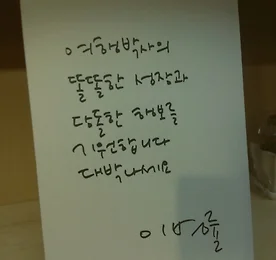 여행박사의
똘똘한 성장과
당돌한 행보를
기원합니다
대박나세요